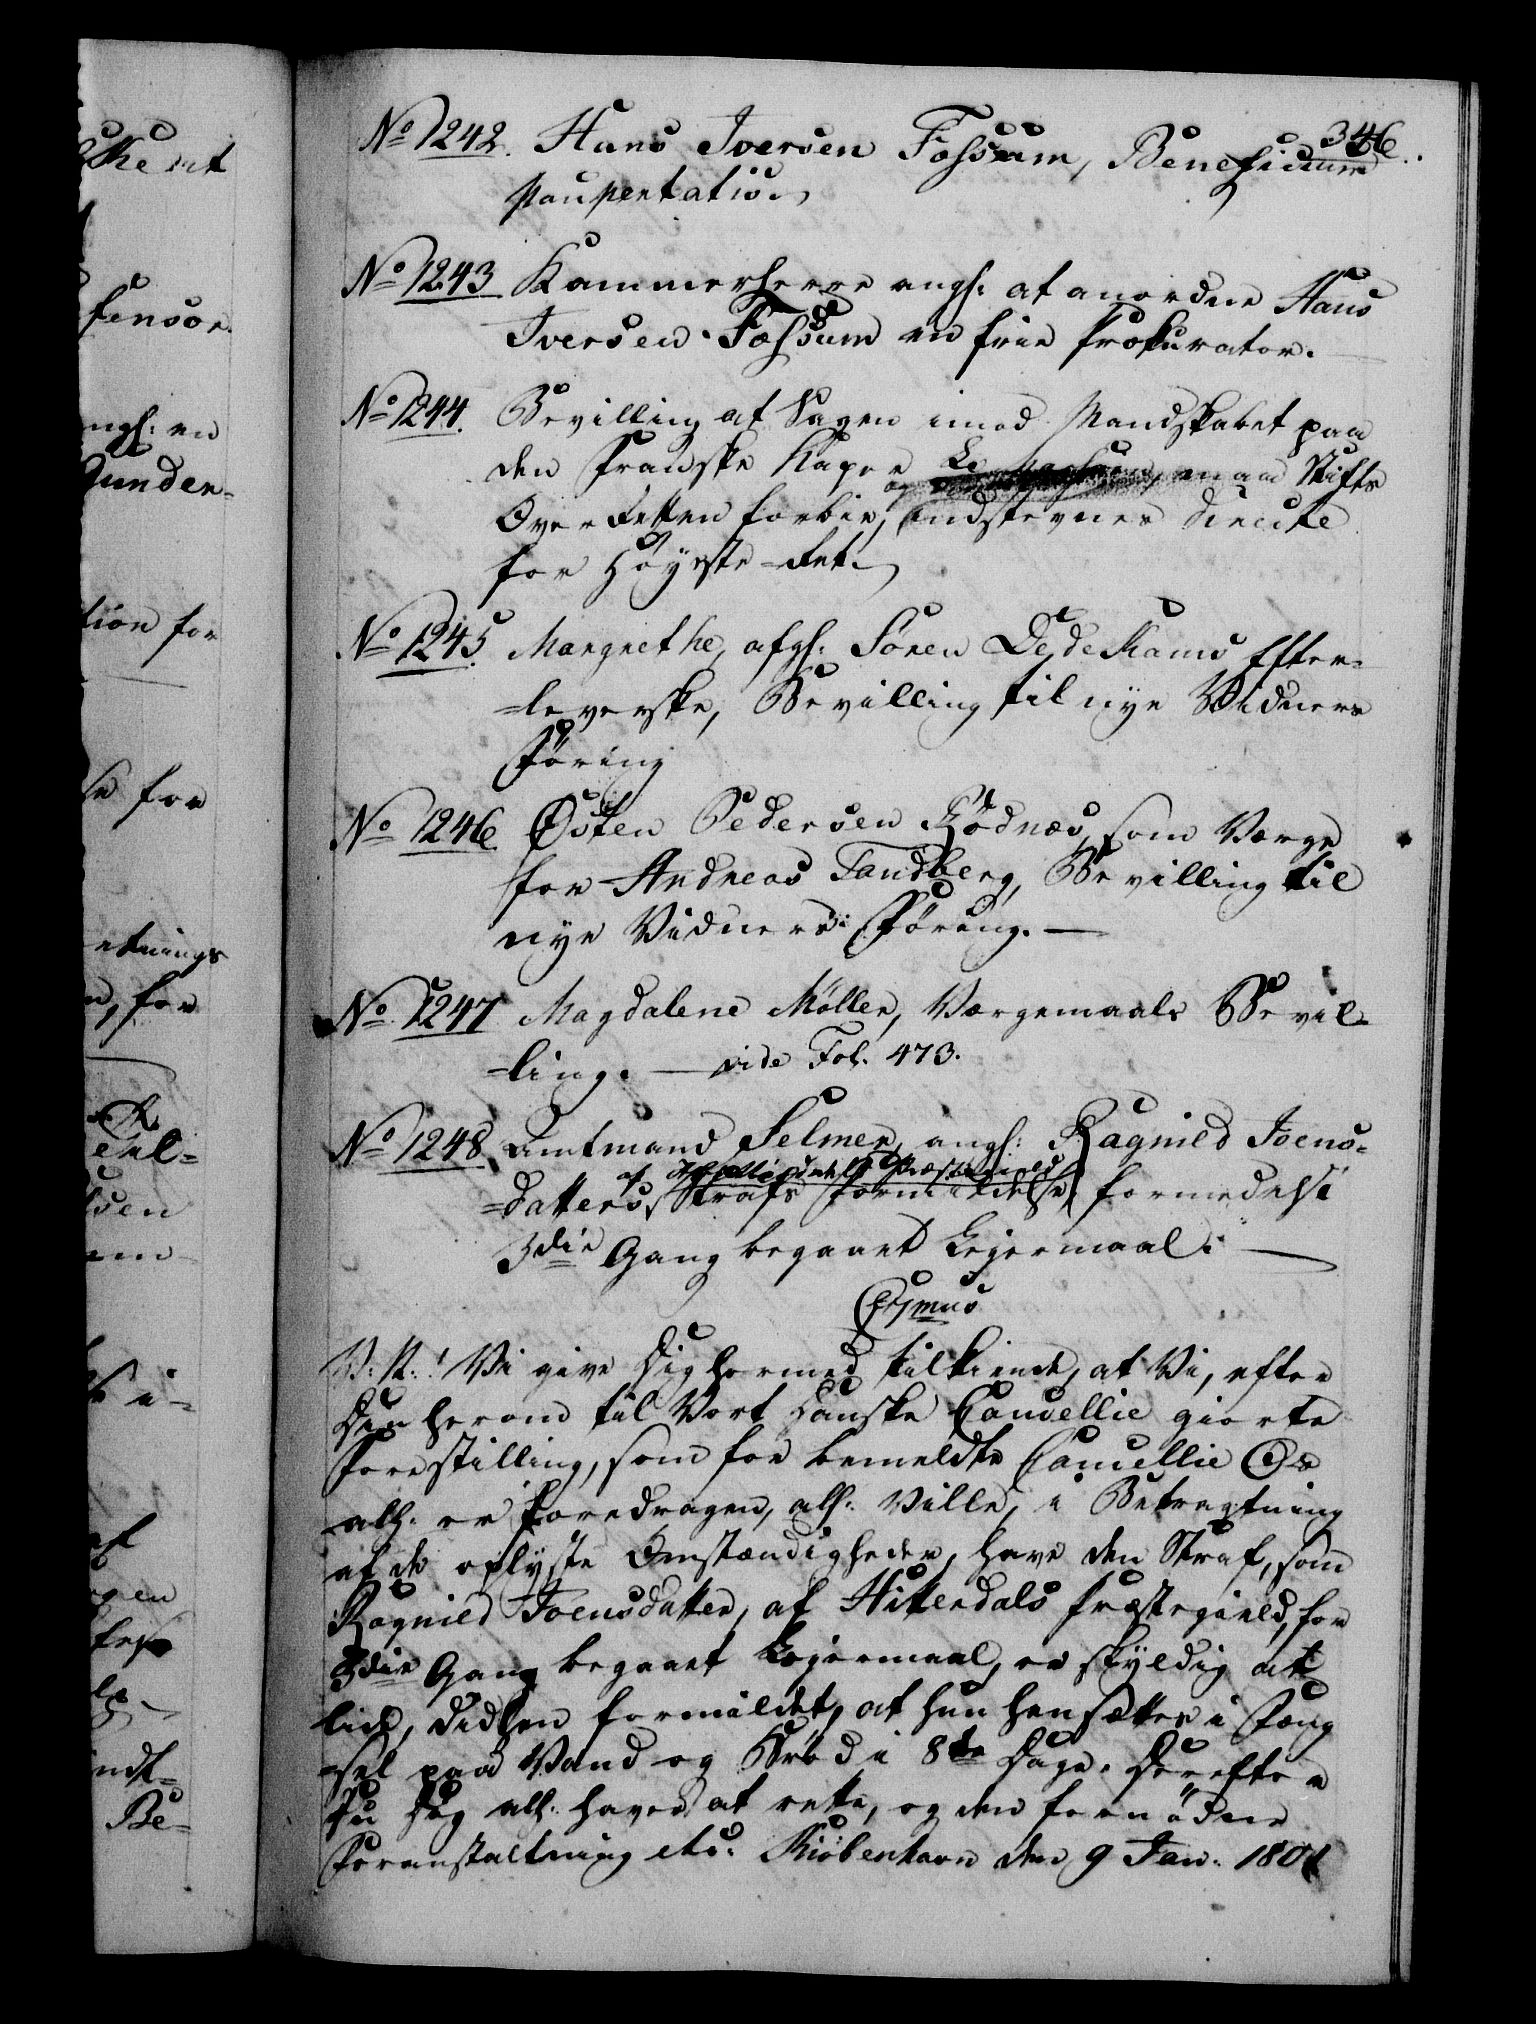 346.
No 1242. Hans Iversen Fossum, Beneficium
paupertatis.
No 1243 Kammerherre angl: at anordne Hans
Iversen Fossum en frie Prokurator.
No 1244. Bevilling at Sagen imod Mandskabet paa
den franske Kaper Le maa Stifts
Over Retten forbie, indstevnes directe
for Høyeste-Ret.
No 1245. Margrethe, afgl: Søren Dedekams Efter-
-leverske, Bevilling til nye Vidners
Føring
No 1246. Østen Pedersen Rødnæs, som Værge
for Andreas Tandberg, Bevilling til
nye Vidners Føring.
No 1247 Magdalene Møller, Værgemaals Bevil-
-ling. — vide Fol. 473.
No 1248. Amtmand Selmer, angl: Ragnild Joens-
af Hitterdals Præstegield
-datters Strafs Formildelse, formedelst
3die Gang begaaet Lejermaal.
C 7mus
V: K:! Vi give Dig hermed tilkiende, at Vi, efter
Din herom til Vort Danske Cancellie giorte
Forestilling, som for bemeldte Cancellie Os
all: er foredragen, all: Ville, i Betragtning
af de oplyste Omstændigheder, have den Straf, som
Ragnild Joensdatter, af Hitterdals Præstegield, for
3die Gang begaaet Lejermaal, er skyldig at
lide, didhen formildet, at hun hensættes i Fæng
-sel paa Vand og Brød i 8te Dage. Derefter
Du Dig all: haver at rette, og den fornødne
Foranstaltning etc. Kiøbenhavn den 9 Jan. 1801